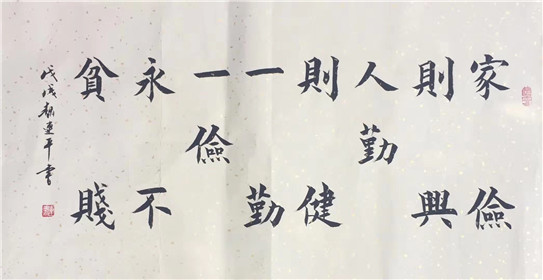 家儉
則興
人勤
則健
一勤
一儉
永不
貧賤
戊戌 連平書